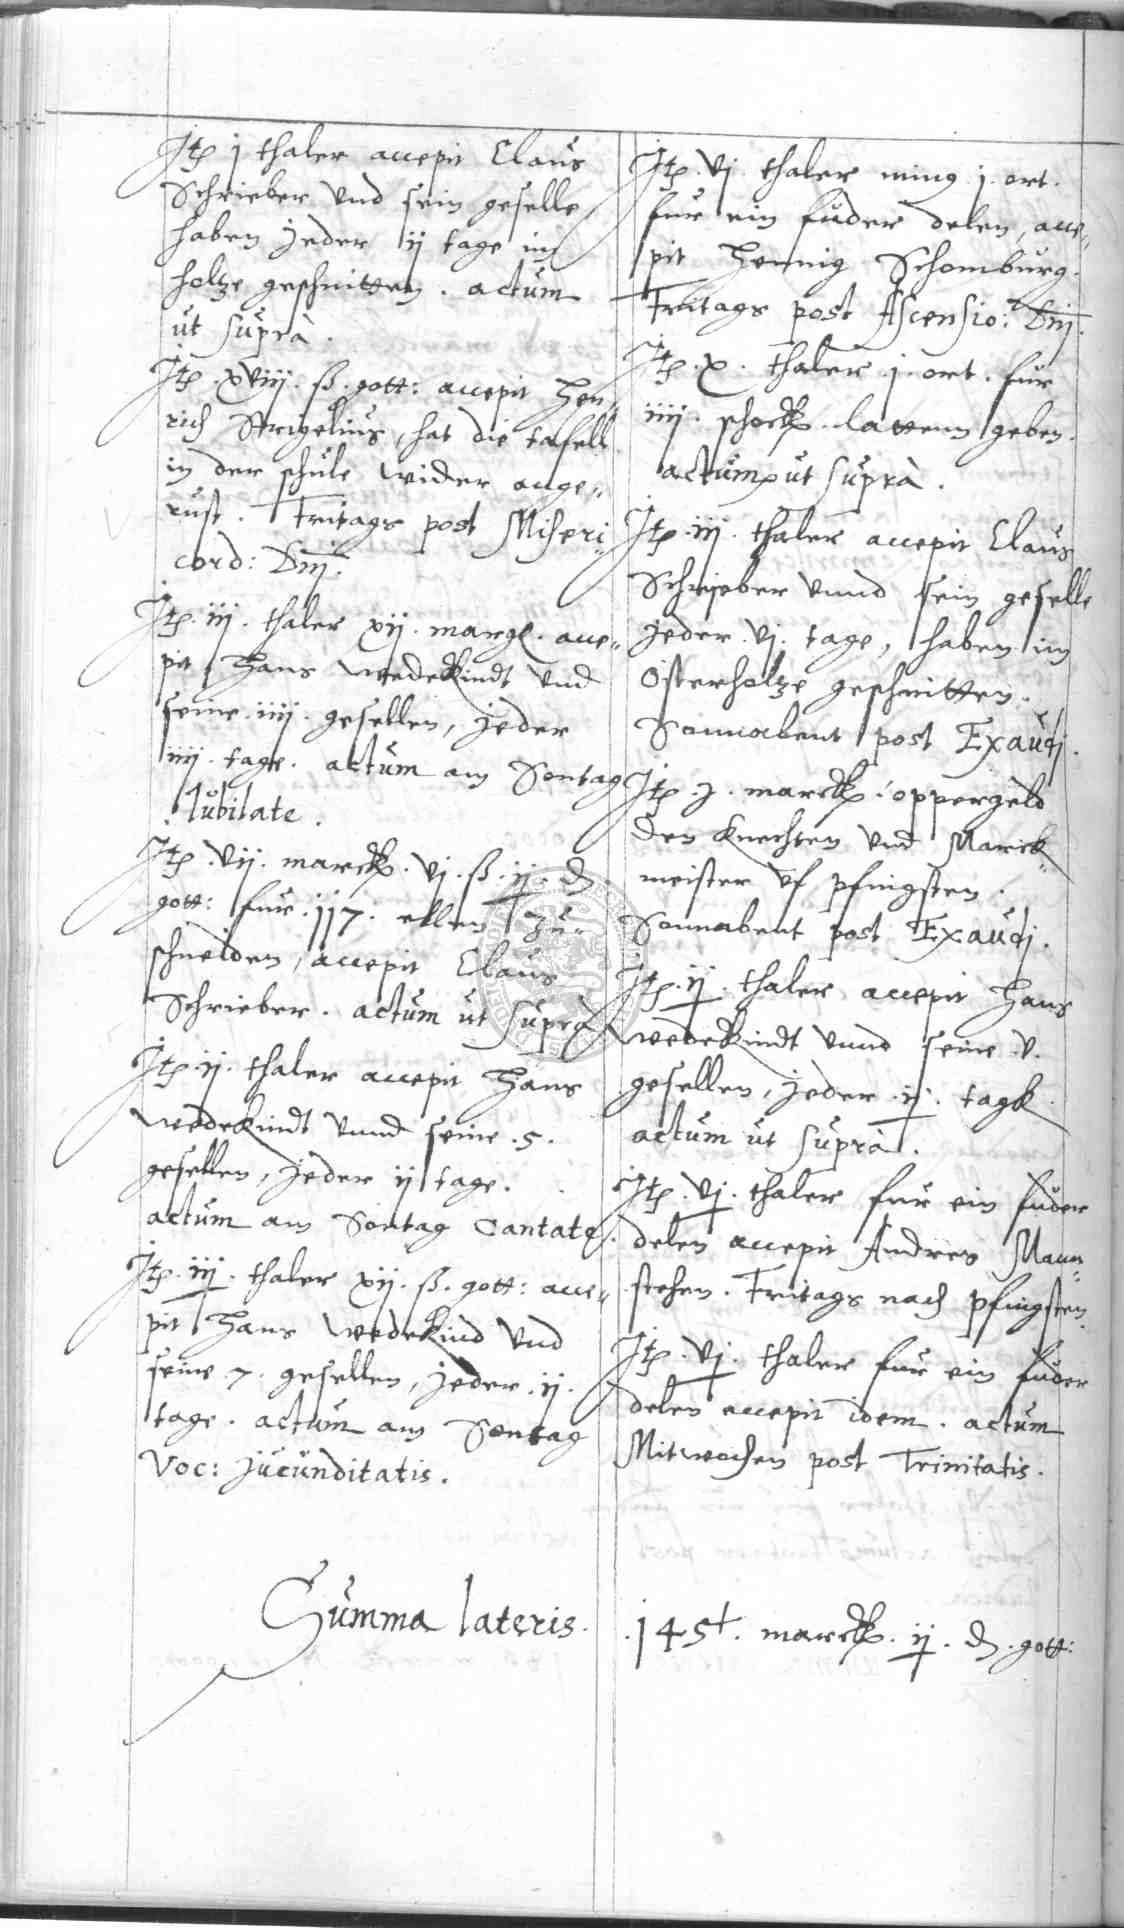 Itē j thaler accepit Claus
Schrieber und sein geselle,
haben jeder ij tage im
holtze geschnitten. actum
ut suprà.
Itē. xviij. ß. gott: accepit Hen¬
rich Strigelius, hat die tafell
in der schule wider ange¬
rust. Fritags post Miseri¬
cord: Dnj.
Itē. iij. thaler xij. margl. acce¬
pit Hans Wedekindt und
seine. iiij. gesellen, jeder
iiij. tage. actum am Sontag
Iubilate.
Itē. vij. marck. vj. ß. ij. ₰
gott: fur. 117. ellen zu¬
schneiden, accepit Claus
Schrieber. actum ut suprà
Itē. ij. thaler accepit Hans
Wedekindt unnd seine. 5.
gesellen, jeder ij tage.
actum am Sontag Cantate.
Itē. iij. thaler xij. ß. gott: acce¬
pit Hans Wedekind und
seine. 7. gesellen, jeder. ij.
tage. actum am Sontag
Voc: jucunditatis.
Itē. vj. thaler minq j. ort.
fur ein fuder delen, acce¬
pit Hennig Schomburg.
Fritags post Ascensio: Dnj.
Itē. x. thaler. j. ort. fur
iiij. schock. lattenn geben.
actum ut suprà.
Itē. iij. thaler accepit Claus
Schrieber unnd sein geselle
jeder. vj. tage, haben im
Osterholtze geschnitten.
Sonnabent post Exaudj.
Itē. j. marck. oppergeld
den knechten und Marck¬
meister uf pfingsten.
Sonnabent post Exaudj.
Itē. ij. thaler accepit Hans
Wedekindt unnd seine. v.
gesellen, jeder. ij. tagk
actum ut suprà.
Itē. vj. thaler fur ein fuder
delen accepit Andres Maun¬
stehen. Fritags nach pfingsten.
Itē. vj. thaler fur ein fuder
delen accepit idem. actum
Mitwochen post Trinitatis.
Summa lateris. 145½. marck. ij. ₰. gott: